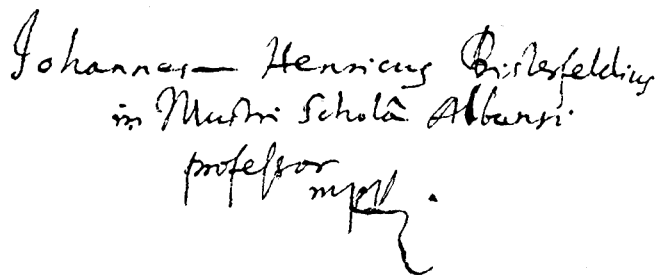 Johannes Henricus Bisterfeldius
in Illustri Scholâ Albensi
professor
mpp.